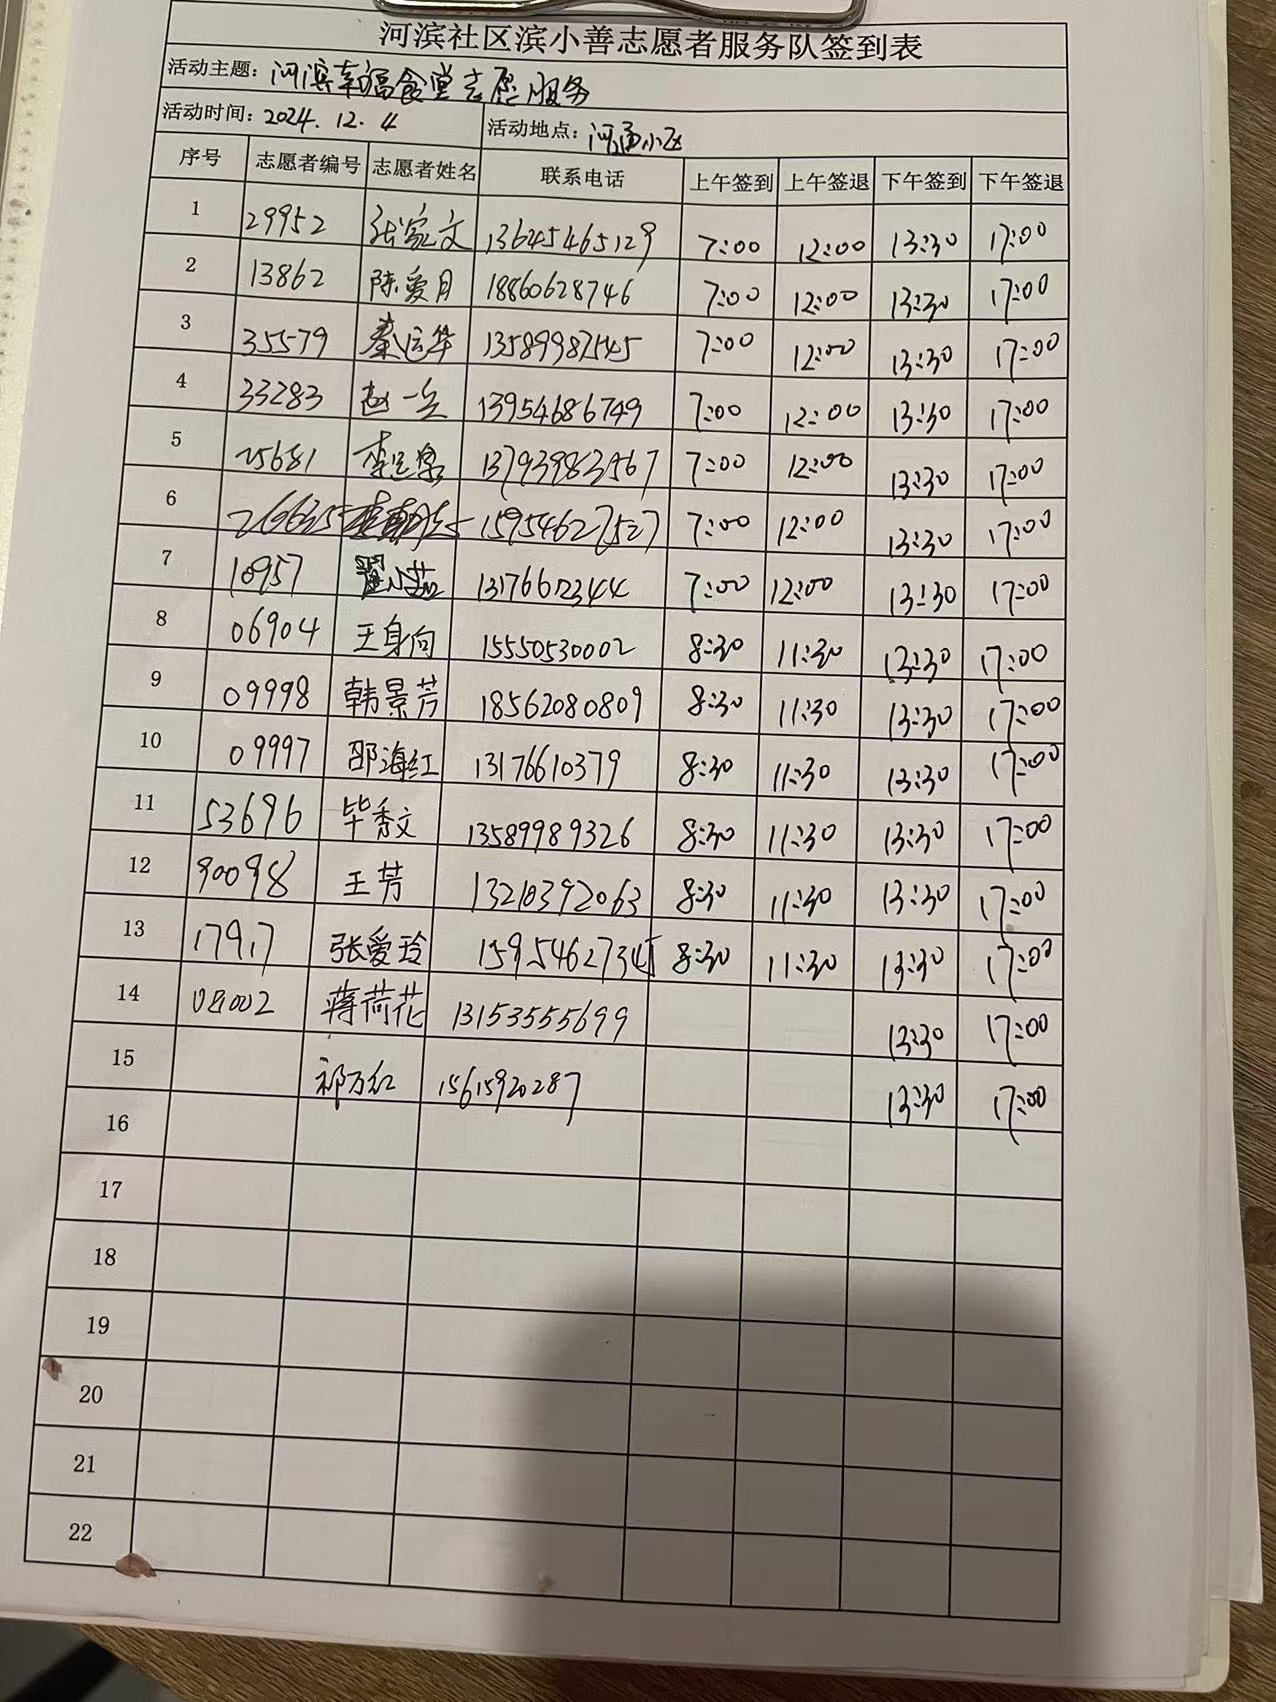 河滨社区滨小善志愿者服务队签到表
活动主题：河滨幸福食堂志愿服务
活动时间：2024.12.4 活动地点：河涵小区
序号 志愿者编号 志愿者姓名 联系电话 上午签到 上午签退 下午签到 下午签退
1 29952 张家文 13645465129 7:00 12:00 13:30 17:00
2 13862 陈爱月 18860628746 7:00 12:00 13:30 17:00
3 35579 秦运华 13589987545 7:00 12:00 13:30 17:00
4 33283 赵一兵 13954686749 7:00 12:00 13:30 17:00
5 25681 13793983567 7:00 12:00 13:30 17:00
6 15954627527 7:00 12:00 13:30 17:00
7 10957 翟小茹 13176612344 7:00 12:00 13:30 17:00
8 06904 王身向 15550530002 8:30 11:30 13:30 17:00
9 09998 韩景芳 18562080809 8:30 11:30 13:30 17:00
10 09997 邵海红 13176610379 8:30 11:30 13:30 17:00
11 53696 毕秀文 13589989326 8:30 11:30 13:30 17:00
12 90098 王芳 13210392063 8:30 11:30 13:30 17:00
13 17917 张爱玲 15954627345 8:30 11:30 13:30 17:00
14 08002 蒋荷花 13153555699 13:30 17:00
15 祁万红 15615920287 13:30 17:00
16
17
18
19
20
21
22